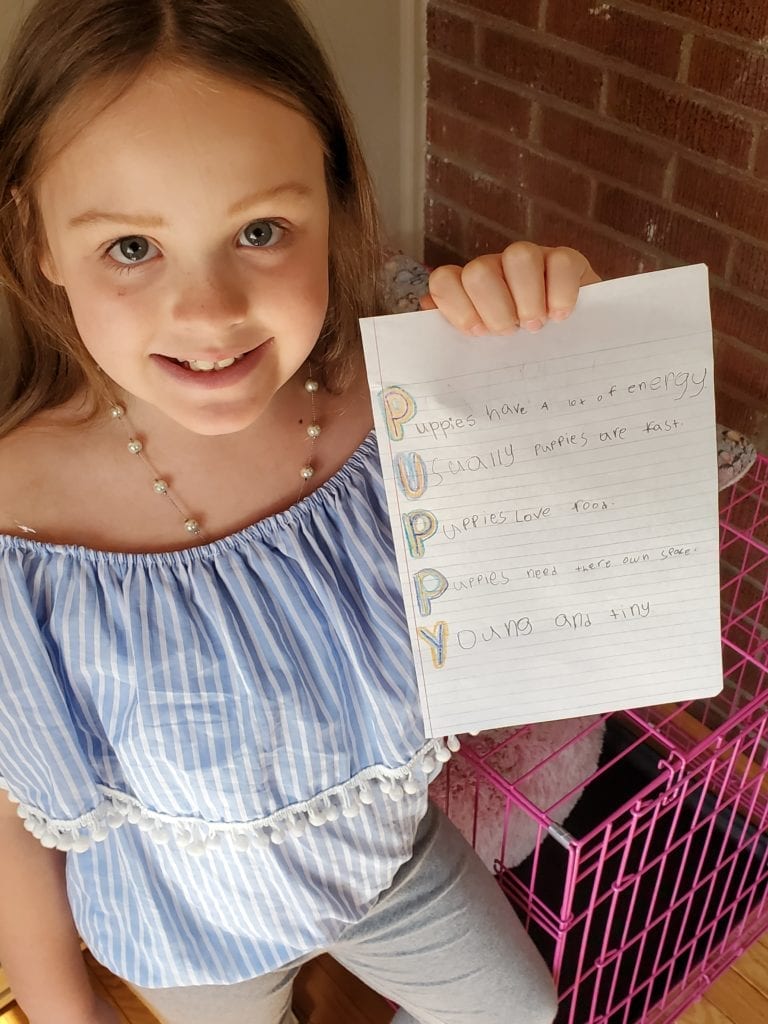 Puppies have a lot of energy.
Usually puppies are fast.
Puppies Love food.
Puppies need there own space.
Young and tiny